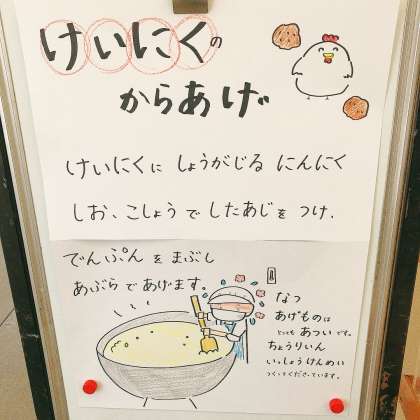 けいにくの
からあげ
けいにくに しょうがじる にんにく
しお、こしょうで したあじを つけ、
でんぷん を まぶし
あぶらで あげます。
なつ
あげものは
とっても あつい です。
ちょうりいん
いっしょうけんめい
つくってくださっています。